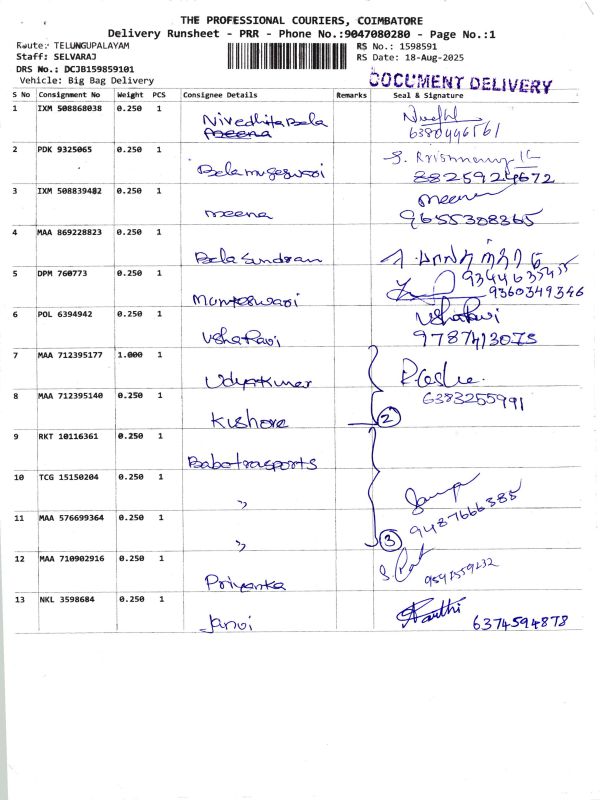 THE PROFESSIONAL COURIERS, COIMBATORE
Delivery Runsheet - PRR - Phone No.:9047080280 - Page No.:1
Route: TELUNGUPALAYAM RS No.: 1598591
Staff: SELVARAJ RS Date: 18-Aug-2025
DRS No.: DCJB159859101
Vehicle: Big Bag Delivery DOCUMENT DELIVERY
S No Consignment No Weight PCS Consignee Details Remarks Seal & Signature
1 IXM 508868038 0.250 1 Nivedhita Bala
meena
2 PDK 9325065 0.250 1 Balamugeswari
8825924672
3 IXM 508839482 0.250 1 meena meena
9655308365
4 MAA 869228823 0.250 1 Bala Sundram
5 DPM 760773 0.250 1 9360349346
6 POL 6394942 0.250 1 Usha Ravi Usha Ravi
9787413075
7 MAA 712395177 1.000 1 Udyakumar
6383255991
8 MAA 712395140 0.250 1 Kishore 2
9 RKT 10116361 0.250 1 Babotrasports
10 TCG 15150204 0.250 1 〃
9487666385
11 MAA 576699364 0.250 1 〃 3
12 MAA 710902916 0.250 1 Priyanka
13 NKL 3598684 0.250 1 Janvi 6374594878